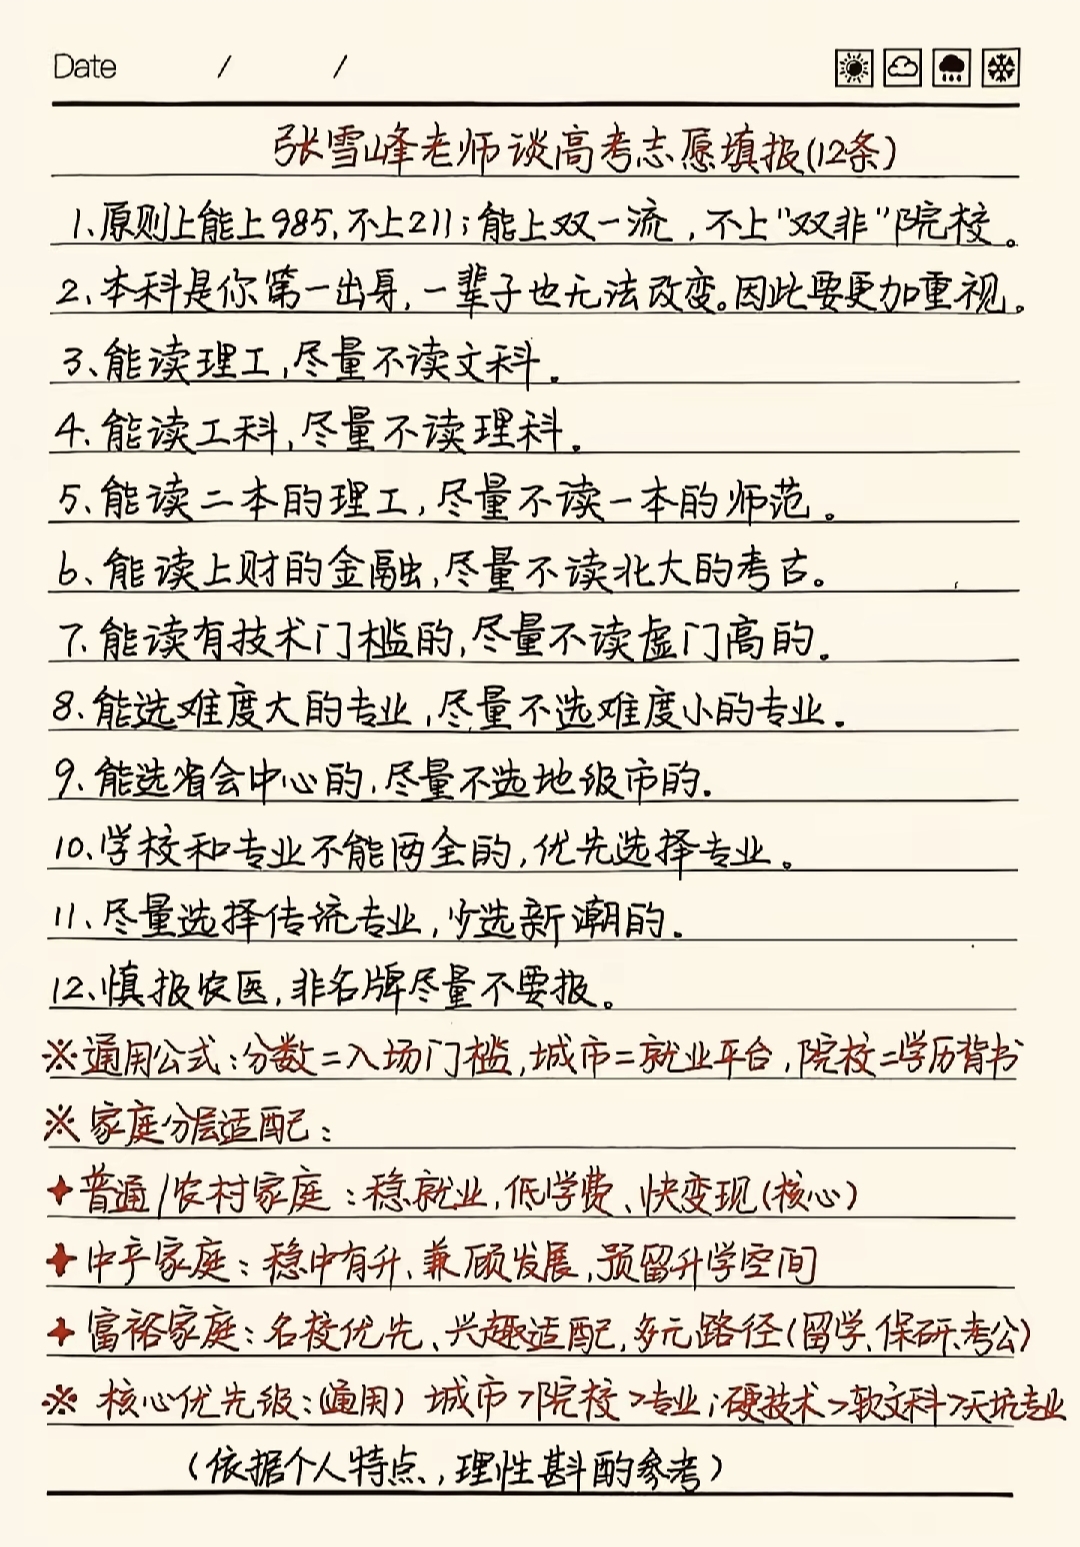 Date / /
张雪峰老师谈高考志愿填报(12条)
1.原则上能上985,不上211;能上双一流,不上"双非"院校。
2、本科是你第一出身,一辈子也无法改变。因此要更加重视。
3、能读理工,尽量不读文科.
4.能读工科,尽量不读理科.
5、能读二本的理工,尽量不读一本的师范。
6、能读上财的金融,尽量不读北大的考古。
7.能读有技术门槛的,尽量不读虚门高的.
8.能选难度大的专业,尽量不选难度小的专业.
9.能选省会中心的,尽量不选地级市的.
10.学校和专业不能两全的,优先选择专业。
11.尽量选择传统专业,少选新潮的.
12.慎报农医,非名牌尽量不要报。
※通用公式:分数=入场门槛,城市=就业平台,院校=学历背书
※家庭分层适配:
✦普通/农村家庭:稳就业,低学费、快变现(核心)
✦中产家庭:稳中有升、兼顾发展,预留升学空间
✦富裕家庭:名校优先、兴趣适配,多元路径(留学、保研、考公)
※ 核心优先级:(通用) 城市>院校>专业;硬技术>软文科>天坑专业
(依据个人特点,理性斟酌参考)